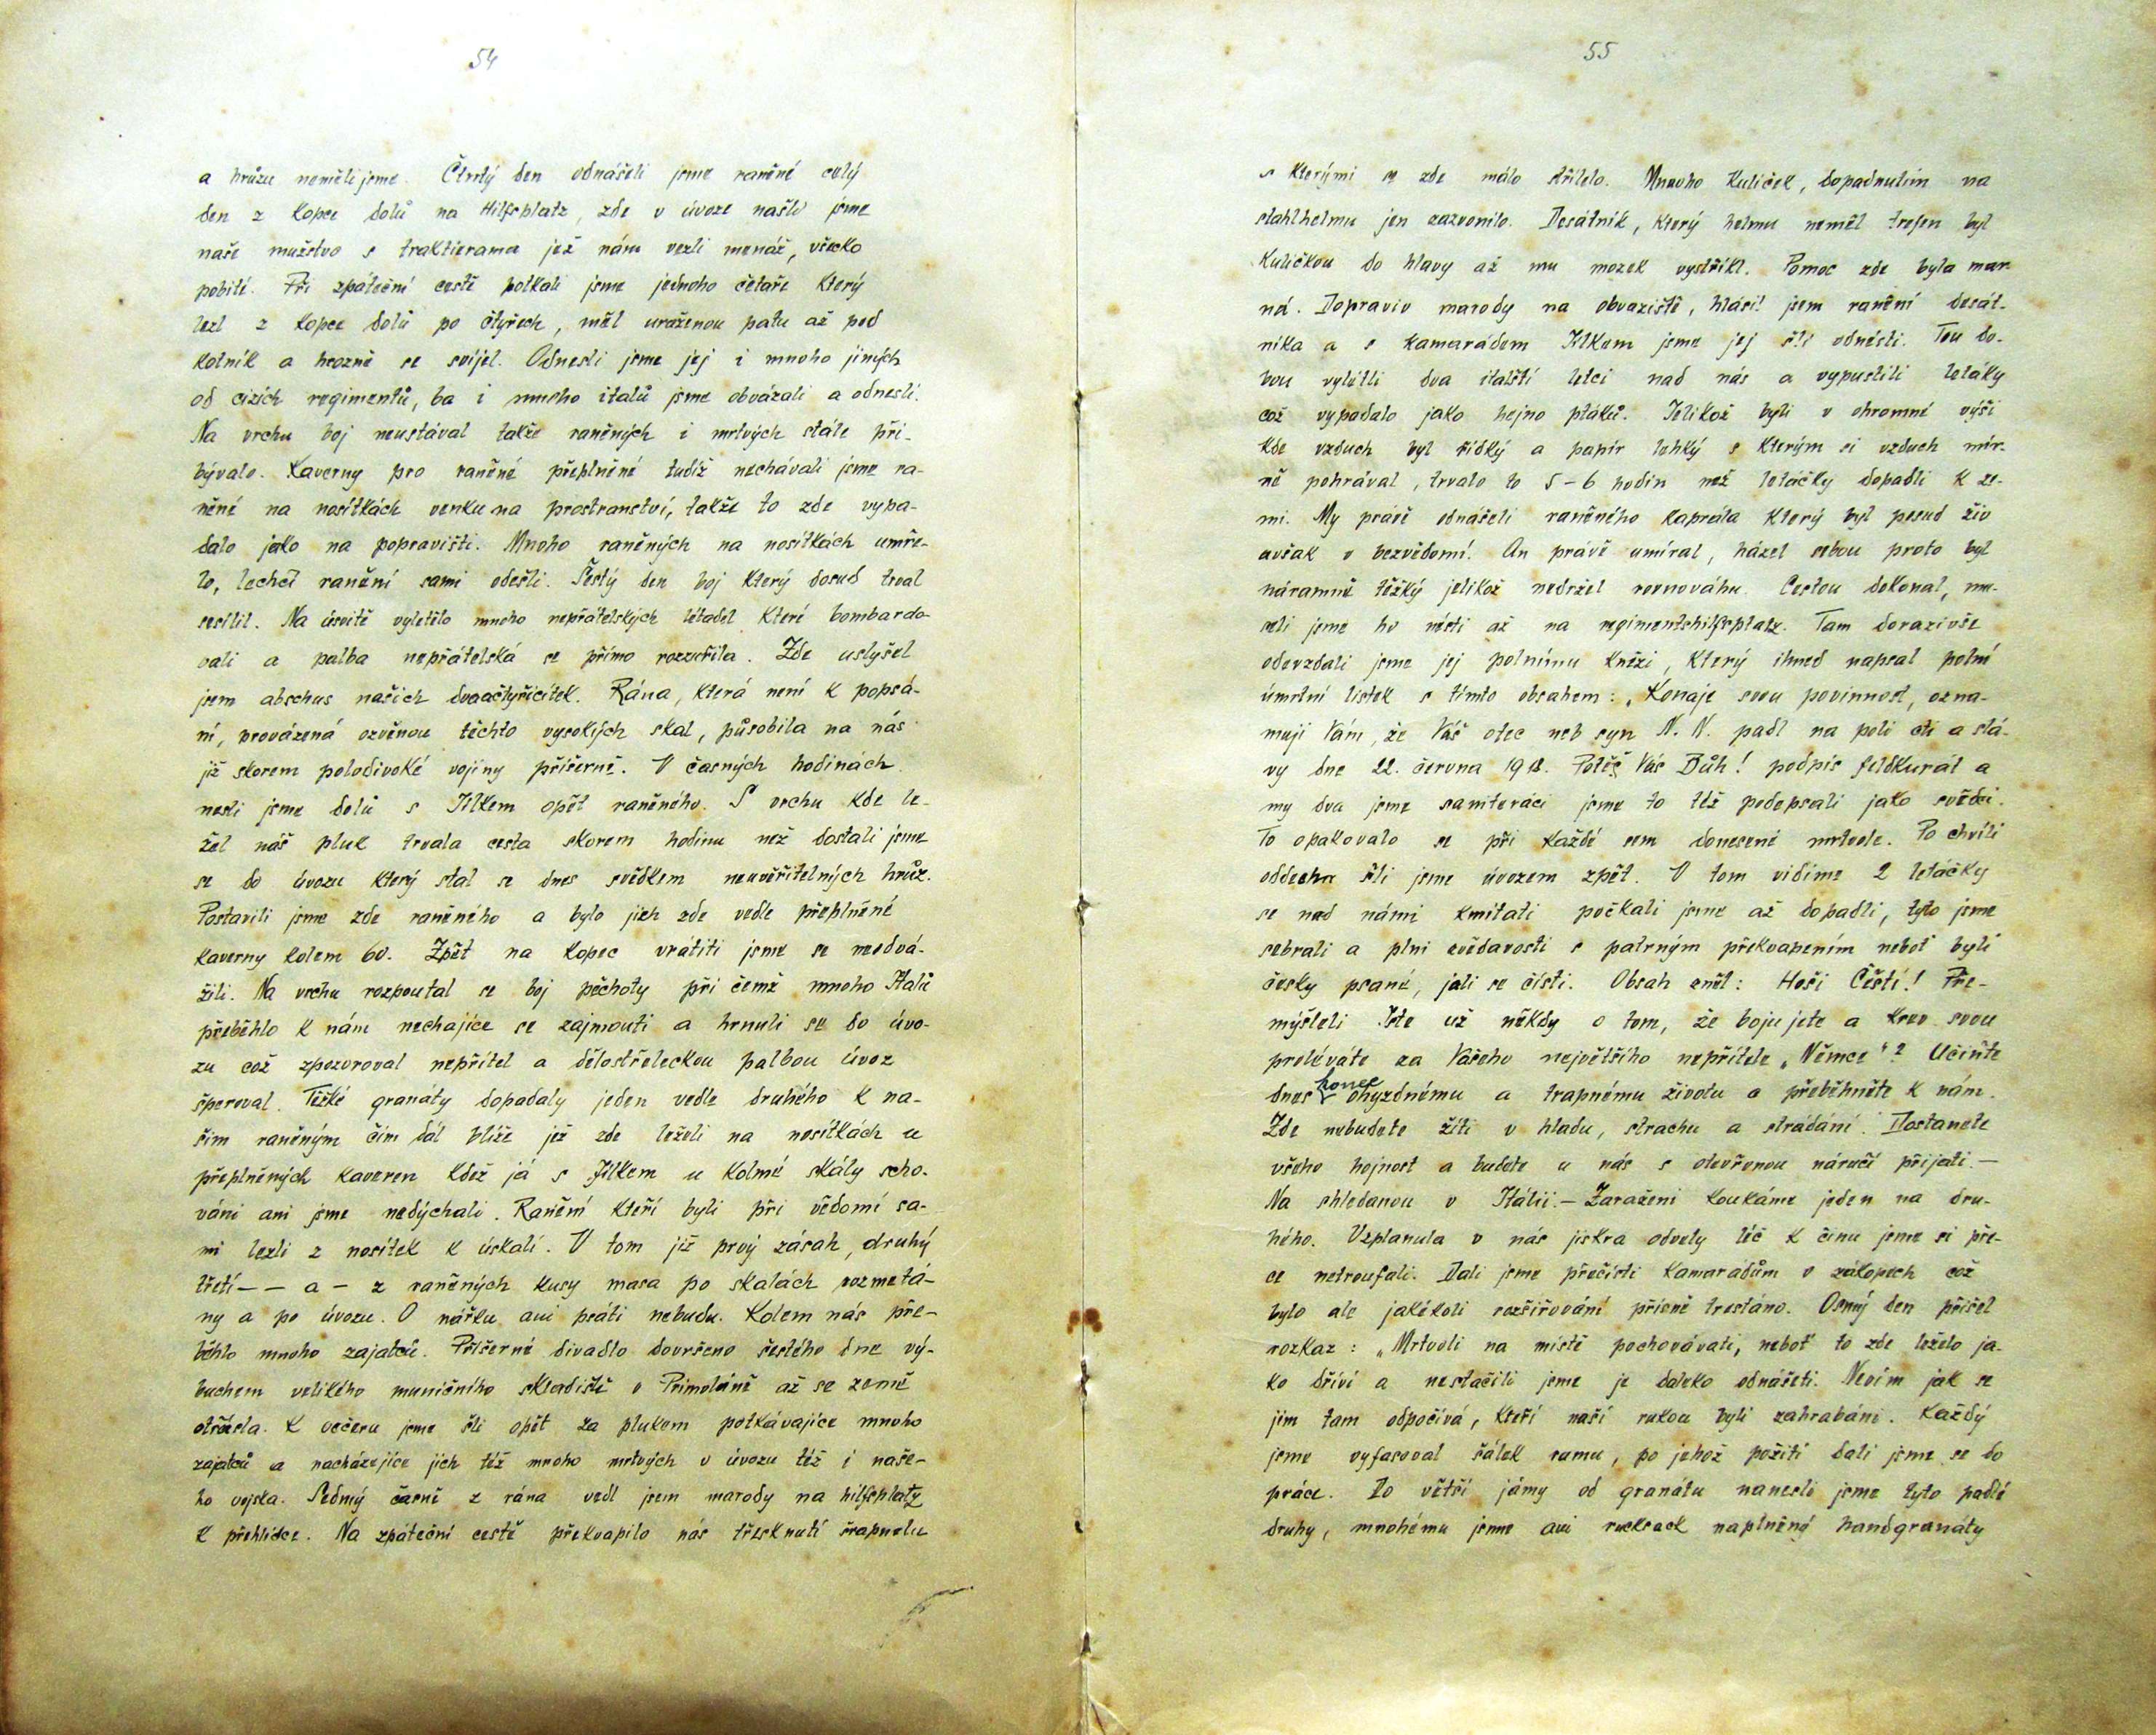 54
a hrůzu neměli jsme. Čtvrtý den odnášeli jsme raněné celý
den z kopce dolů na Hilfsplatz, zde v úvoze našli jsme
naše mužstvo s traktierama jež nám vezli menáž, všecko
pobité. Při zpáteční cestě potkali jsme jednoho četaře který
lezl z kopce dolů po čtyřech, měl uraženou patu až pod
kotník a hrozně se svíjel. Odnesli jsme jej i mnoho jiných
od cizích regimentů, ba i mnoho italů jsme obvázali a odnesli.
Na vrchu boj neustával takže raněných i mrtvých stále při-
bývalo. Kaverny pro raněné přeplněné tudíž nechávali jsme ra-
něné na nosítkách venku na prostranství, takže to zde vypa-
dalo jako na popravišti. Mnoho raněných na nosítkách umře-
lo, lehčí ranění sami odešli. Šestý den boj který dosud trval
sesílil. Na úsvitě vyletělo mnoho nepřátelských létadel které bombardo-
vali a palba nepřátelská se přímo rozzuřila. Zde uslyšel
jsem abschus našich dvaačtyřicítek. Rána, která není k popsá-
ní, provázená ozvěnou těchto vysokých skal, působila na nás
již skorem polodivoké vojíny příšerně. V časných hodinách
nesli jsme dolů s Jílkem opět raněného. S vrchu kde le-
žel náš pluk trvala cesta skorem hodinu než dostali jsme
se do úvozu který stal se dnes svědkem neuvěřitelných hrůz.
Postavili jsme zde raněného a bylo jich zde vedle přeplněné
kaverny kolem 60. Zpět na kopec vrátiti jsme se neodvá-
žili. Na vrchu rozpoutal se boj pěchoty při čemž mnoho Italů
přeběhlo k nám nechajíce se zajmouti a hrnuli se do úvo-
zu což zpozoroval nepřítel a dělostřeleckou palbou úvoz
šperoval. Těžké granáty dopadaly jeden vedle druhého k na-
šim raněným čím dál blíže jež zde leželi na nosítkách u
přeplněných kaveren kdež já s Jílkem u kolmé skály scho-
váni ani jsme nedýchali. Ranění kteří byli při vědomí sa-
mi lezli z nosítek k úskalí. V tom již prvý zásah, druhý
třetí — — a — z raněných kusy masa po skalách rozmetá-
ny a po úvozu. O nářku ani psáti nebudu. Kolem nás pře-
běhlo mnoho zajatců. Příšerné divadlo dovršeno šestého dne vý-
buchem velikého muničního skladiště v Primoláně až se země
otřásla. K večeru jsme šli opět za plukem potkávajíce mnoho
zajatců a nacházejíce jich též mnoho mrtvých v úvozu též i naše-
ho vojska. Sedmý časně z rána vedl jsem marody na hilfsplatz
k přehlídce. Na zpáteční cestě překvapilo nás třesknutí šrapnelu
55
s kterými se zde málo střílelo. Mnoho kuliček, dopadnutím na
stahlhelmu jen zazvonilo. Desátník, který helmu neměl trefen byl
kuličkou do hlavy až mu mozek vystříkl. Pomoc zde byla mar
ná. Dopraviv marody na obvaziště, hlásil jsem ranění desát-
níka a s kamarádem Jílkem jsme jej šli odnésti. Tou do-
bou vylétli dva italští letci nad nás a vypustili letáky
což vypadalo jako hejno ptáků. Jelikož byli v ohromné výši
kde vzduch byl řídký a papír lehký s kterým si vzduch mír-
ně pohrával, trvalo to 5-6 hodin než letáčky dopadli k ze-
mi. My právě odnášeli raněného kaprála který byl posud živ
avšak v bezvědomí. On právě umíral, házel sebou proto byl
náramně těžký jelikož nedržel rovnováhu. Cestou dokonal, mu-
seli jsme ho nésti až na regimentshilfsplatz. Tam dorazivše
odevzdali jsme jej polnímu knězi, který ihned napsal polní
úmrtní lístek s tímto obsahem: „Konaje svou povinnost, ozna-
muji Vám, že Váš otec neb syn N. N. padl na poli cti a slá-
vy dne 22. června 1918. Potěš Vás Bůh! podpis feldkurát a
my dva jsme saniteráci jsme to též podepsali jako svědci.
To opakovalo se při každé sem donesené mrtvole. Po chvíli
oddechu šli jsme úvozem zpět. V tom vidíme 2 letáčky
se nad námi kmitati počkali jsme až dopadli, tyto jsme
sebrali a plni zvědavosti s patrným překvapením neboť byli
česky psané, jali se čísti. Obsah zněl: Hoši Čeští! Pře-
mýšleli Jste už někdy o tom, že bojujete a krev svou
proléváte za Vašeho největšího nepřítele „Němce"? Učiňte
dnes konec ohyzdnému a trapnému životu a přeběhněte k nám.
Zde nebudete žíti v hladu, strachu a strádání. Dostanete
všeho hojnost a budete u nás s otevřenou náručí přijati. —
Na shledanou v Itálii. — Zaraženi koukáme jeden na dru-
hého. Vzplanula v nás jiskra odvety léč k činu jsme si pře-
ce netroufali. Dali jsme přečísti kamarádům v zákopech což
bylo ale jakékoli rozšiřování přísně trestáno. Osmý den přišel
rozkaz: „Mrtvoli na místě pochovávati, neboť to zde leželo ja-
ko dříví a nestačili jsme je daleko odnášeti. Nevím jak se
jim tam odpočívá, kteří naší rukou byli zahrabáni. Každý
jsme vyfasoval šálek rumu, po jehož požití dali jsme se do
práce. Do větší jámy od granátu nanesli jsme tyto padlé
druhy, mnohému jsme ani rucksack naplněný handgranáty